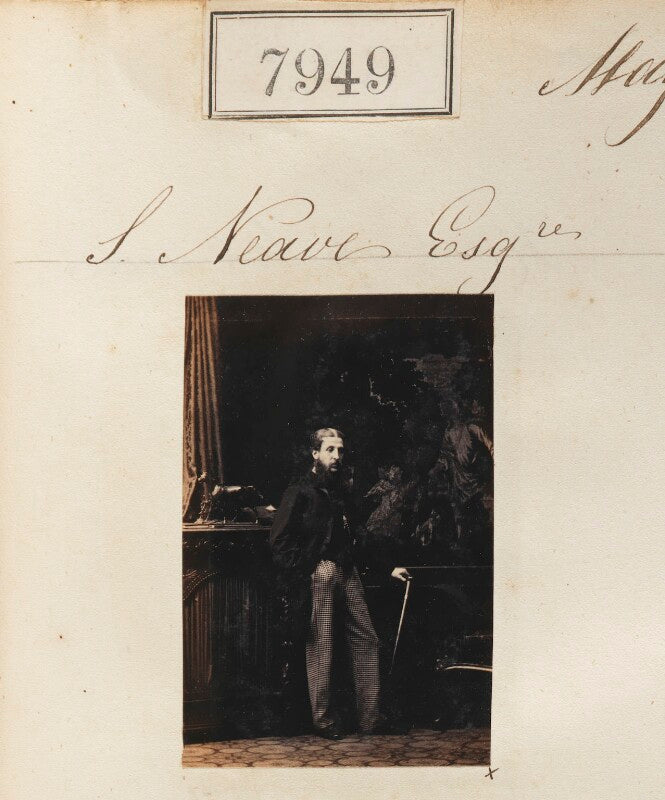 7949
S. Neave Esqre
x